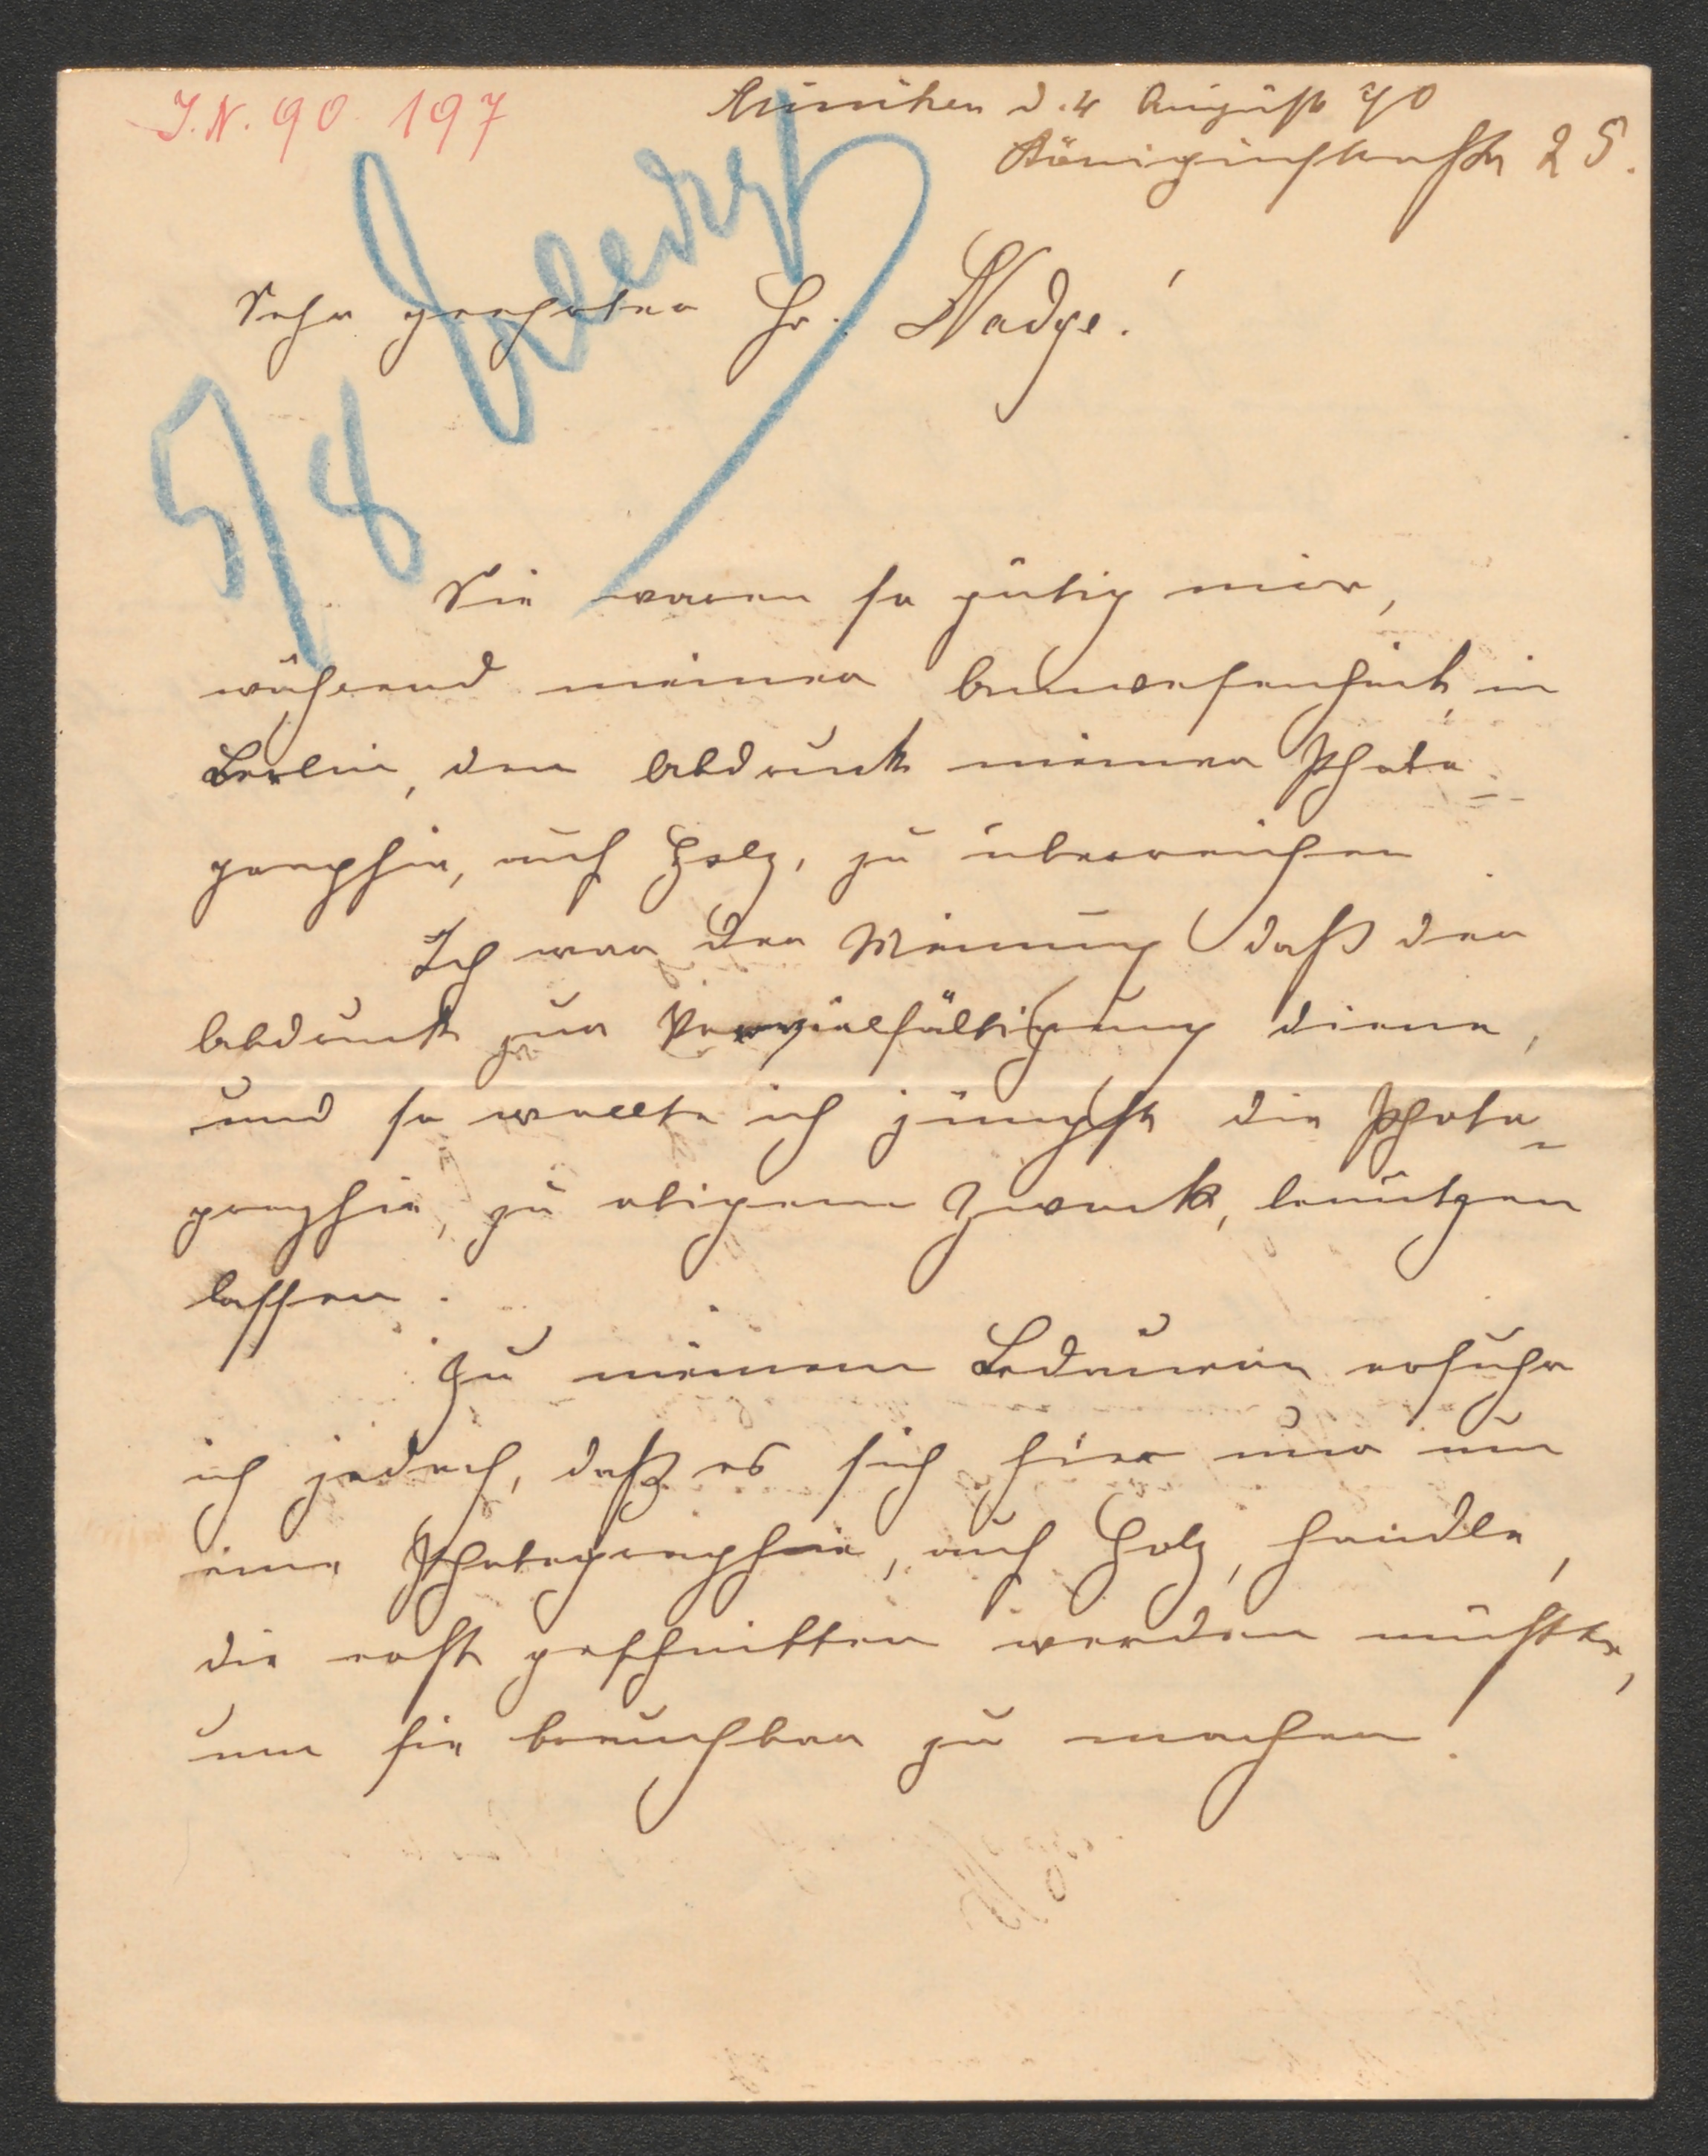 J.N. 90.197
München d. 4 August 90
Königinstraße 25.
Erledigt
5/8
Sehr geehrter Hr. Nadge!
Sie waren so gütig mir,
während meiner Anwesenheit, in
Berlin, den Abdruck meiner Photo-
graphie, auf Holz, zu überreichen
Ich war der Meinung daß der
Abdruck zur Vervielfältigung diene,
und so wollte ich jüngst die Photo-
graphie, zu obigem Zweck, benützen
lassen.
Zu meinem Bedauern erfuhr
ich jedoch, daß es sich hier nur um
eine Photographie, auf Holz, handle,
die erst geschnitten werden müßte,
um sie brauchbar zu machen!